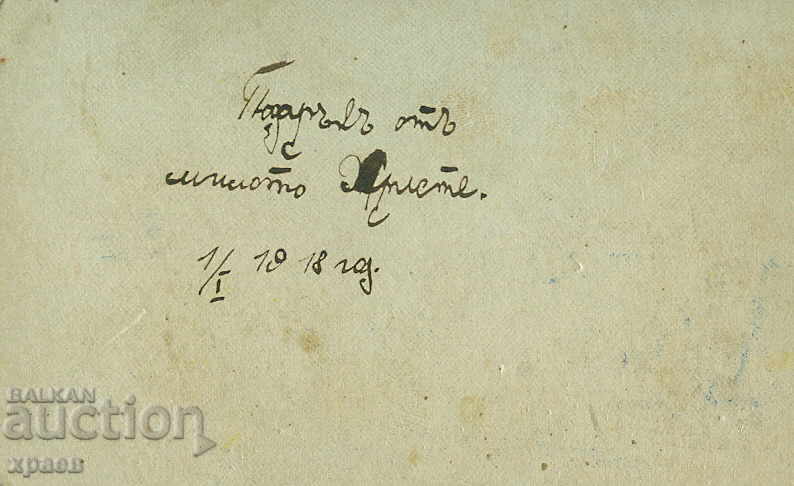 Подаръкъ отъ
милото Христе.
1/I 1918 год.
BALKAN
auction
храов